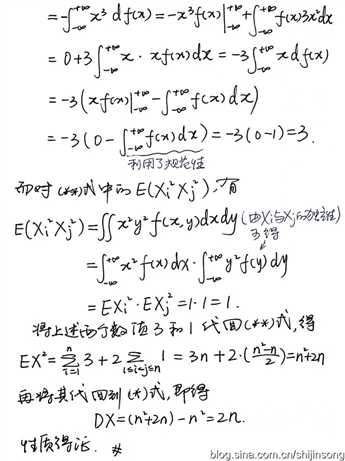 = -∫_{-∞}^{+∞} x³ df(x) = -x³f(x)|_{-∞}^{+∞} + ∫_{-∞}^{+∞} f(x)3x²dx
= 0+3∫_{-∞}^{+∞} x · xf(x)dx = -3∫_{-∞}^{+∞} x df(x)
= -3(xf(x)|_{-∞}^{+∞} - ∫_{-∞}^{+∞} f(x)dx)
= -3(0 - ∫_{-∞}^{+∞} f(x)dx) = -3(0-1) = 3.
利用了规范性
而对(**)式中的E(Xi²Xj²),有
E(Xi²Xj²) = ∬x²y²f(x,y)dxdy (由Xi与Xj的独立性
可得
= ∫_{-∞}^{+∞} x²f(x)dx · ∫_{-∞}^{+∞} y²f(y)dy
= EXi² · EXj² = 1·1 = 1.
将上述两个数值3和1代回(**)式,得
EX² = Σ_{i=1}^{n} 3 + 2 Σ_{1≤i<j≤n} 1 = 3n + 2·(n²-n/2) = n²+2n
再将其代回到(*)式,即得
DX = (n²+2n) - n² = 2n.
性质得证. #
blog.sina.com.cn/shijinsong